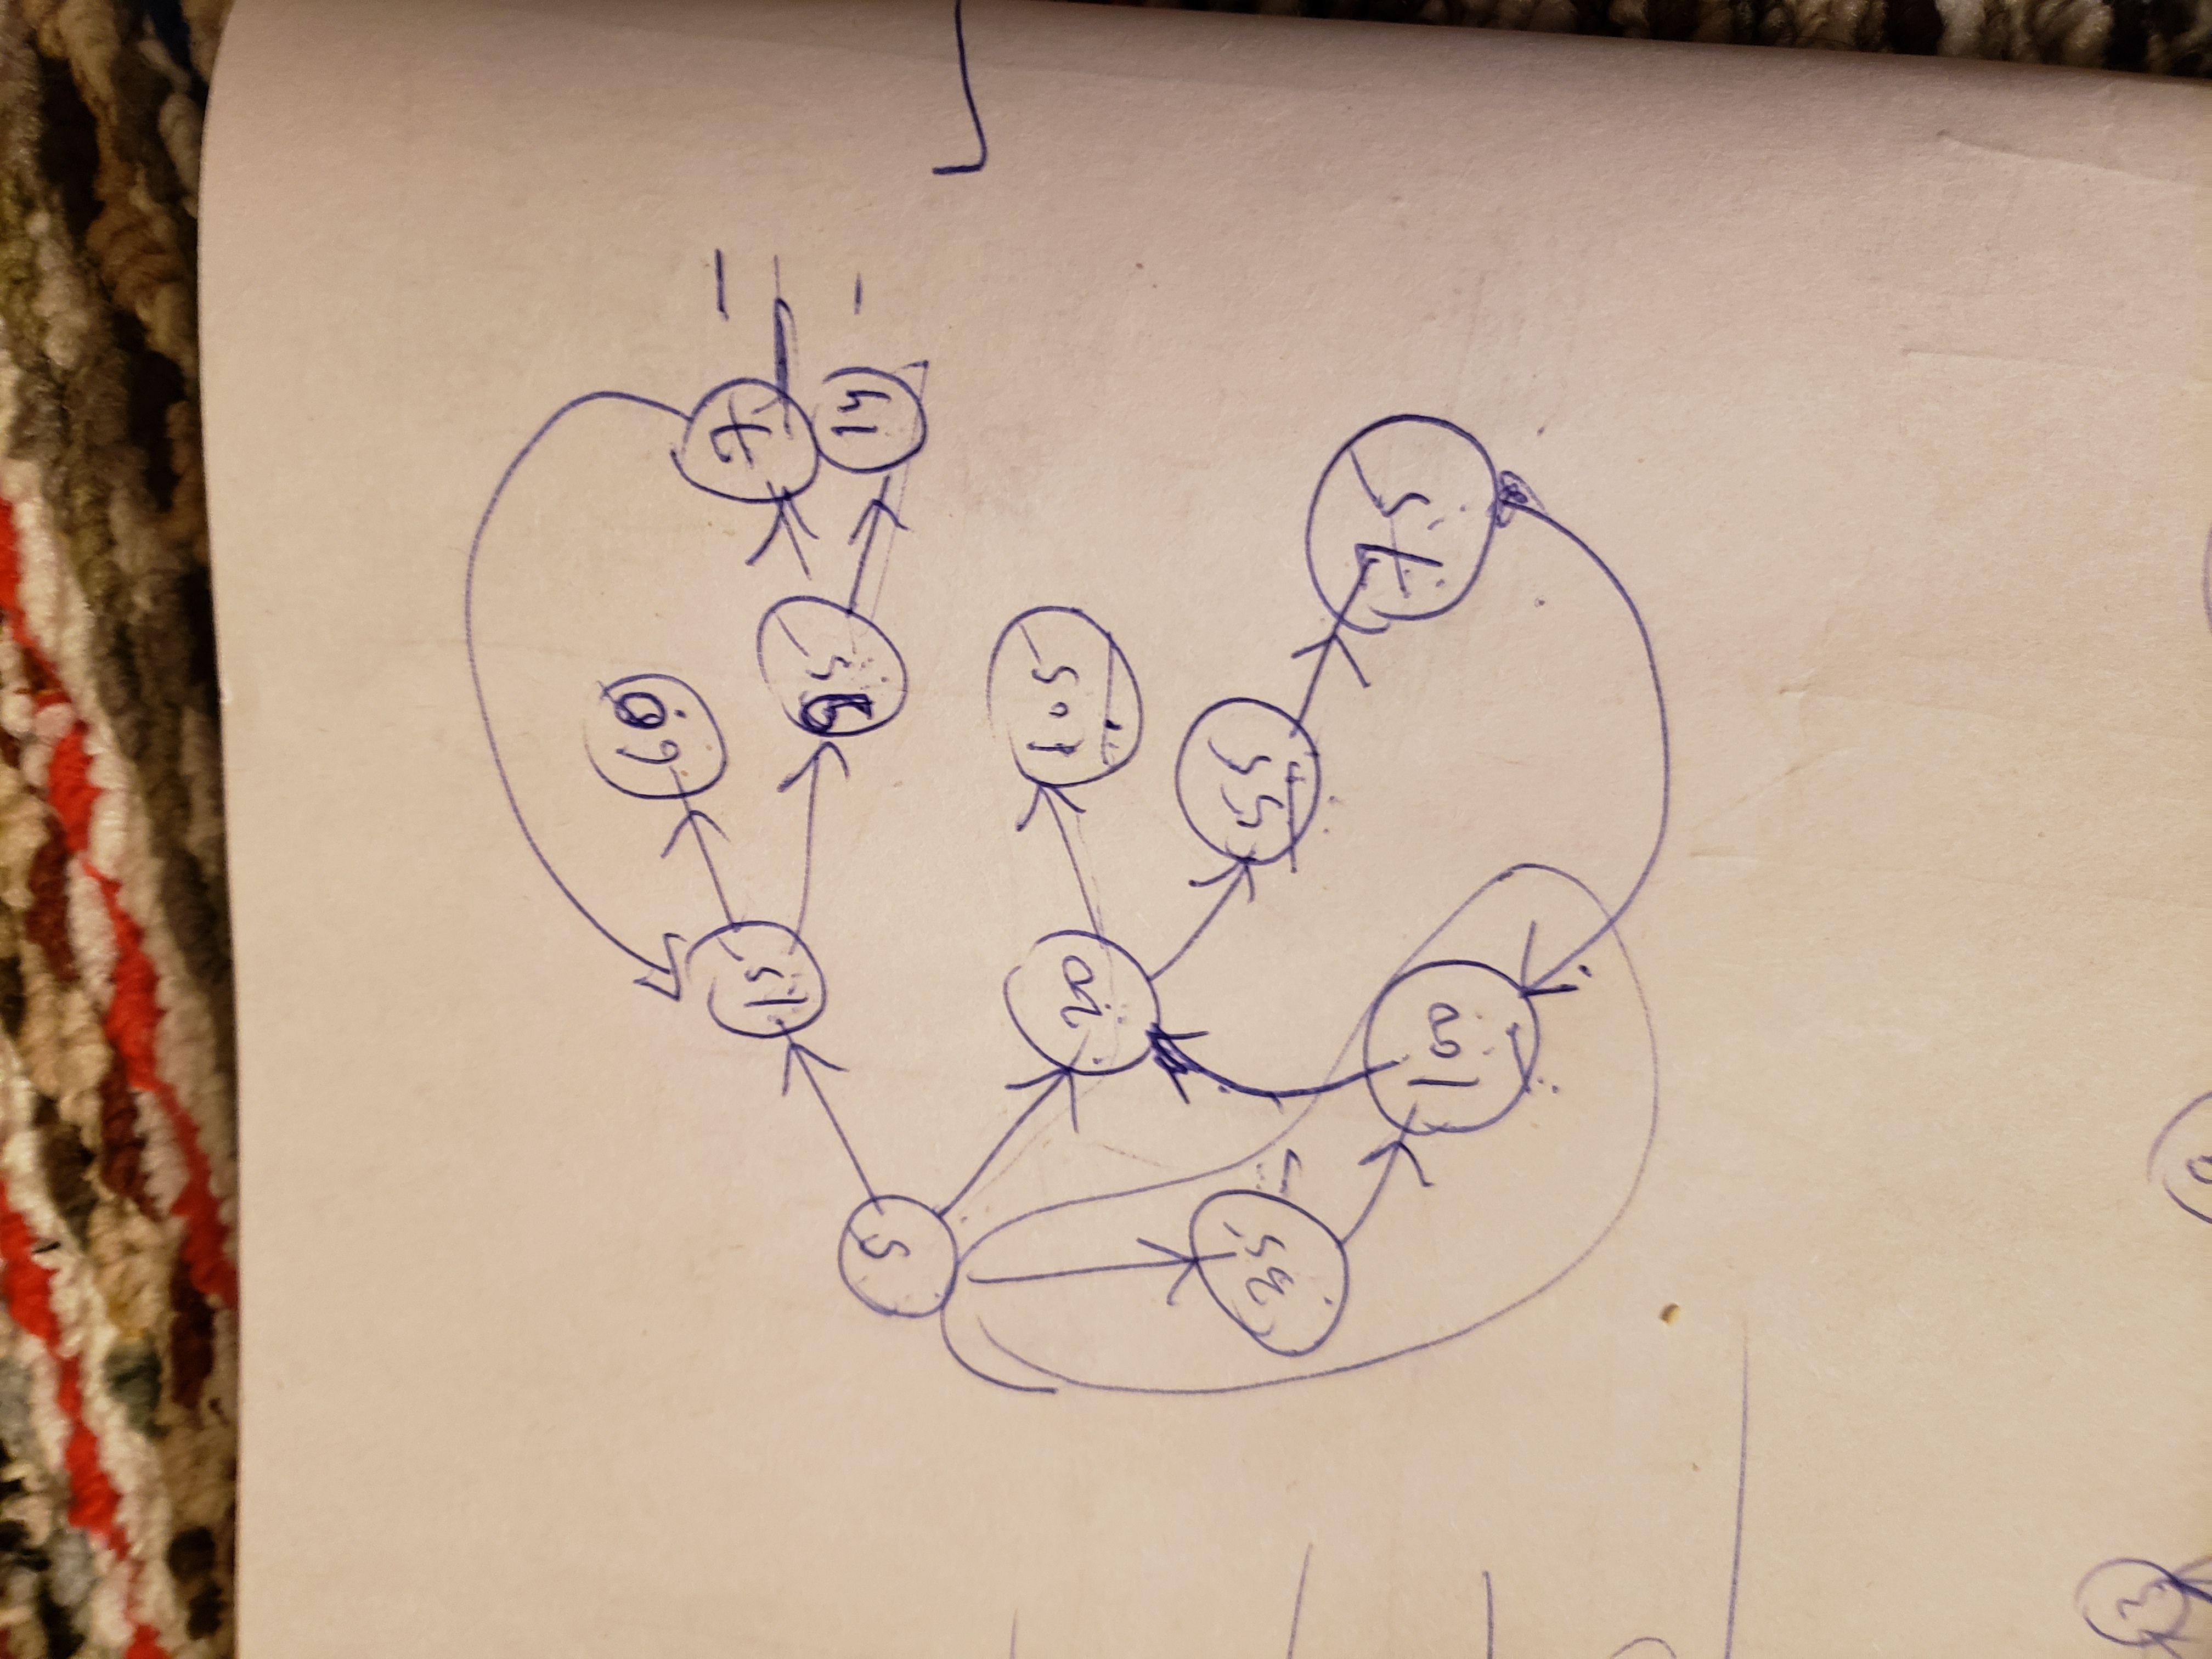 60
15
7
95
14
5
20
105
35
55
100
75
3
9